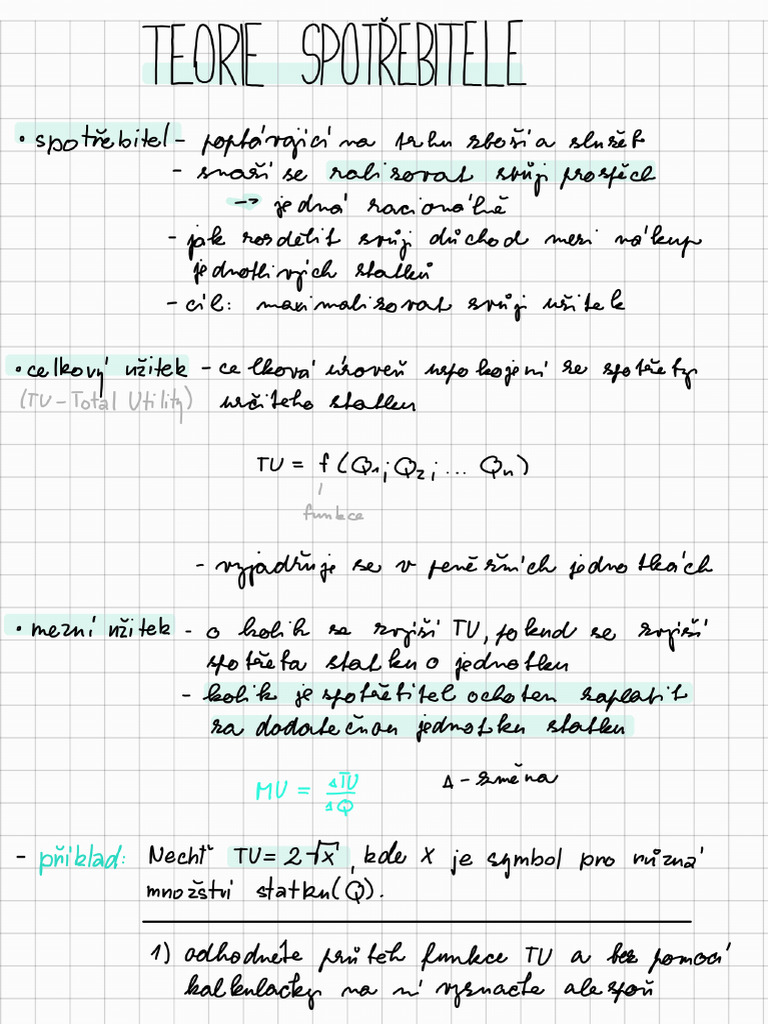 TEORIE SPOTŘEBITELE
• spotřebitel - poptávající na trhu zboží a služeb
- snaží se realizovat svůj prospěch
→ jedná racionálně
- jak rozdělit svůj důchod mezi nákup
jednotlivých statků
- cíl: maximalizovat svůj užitek
• celkový užitek - celková úroveň uspokojení ze spotřeby
(TU - Total Utility) určitého statku
TU = f (Q₁; Q₂; ... Qₙ)
funkce
- vyjadřuje se v peněžních jednotkách
• mezní užitek - o kolik se zvýší TU, pokud se zvýší
spotřeba statku o jednotku
- kolik je spotřebitel ochoten zaplatit
za dodatečnou jednotku statku
MU = ΔTU/ΔQ Δ - změna
- příklad: Nechť TU = 2√x, kde X je symbol pro různá
množství statku (Q).
1) odhodněte průběh funkce TU a bez pomoci
kalkulačky na ní vyznačte alespoň